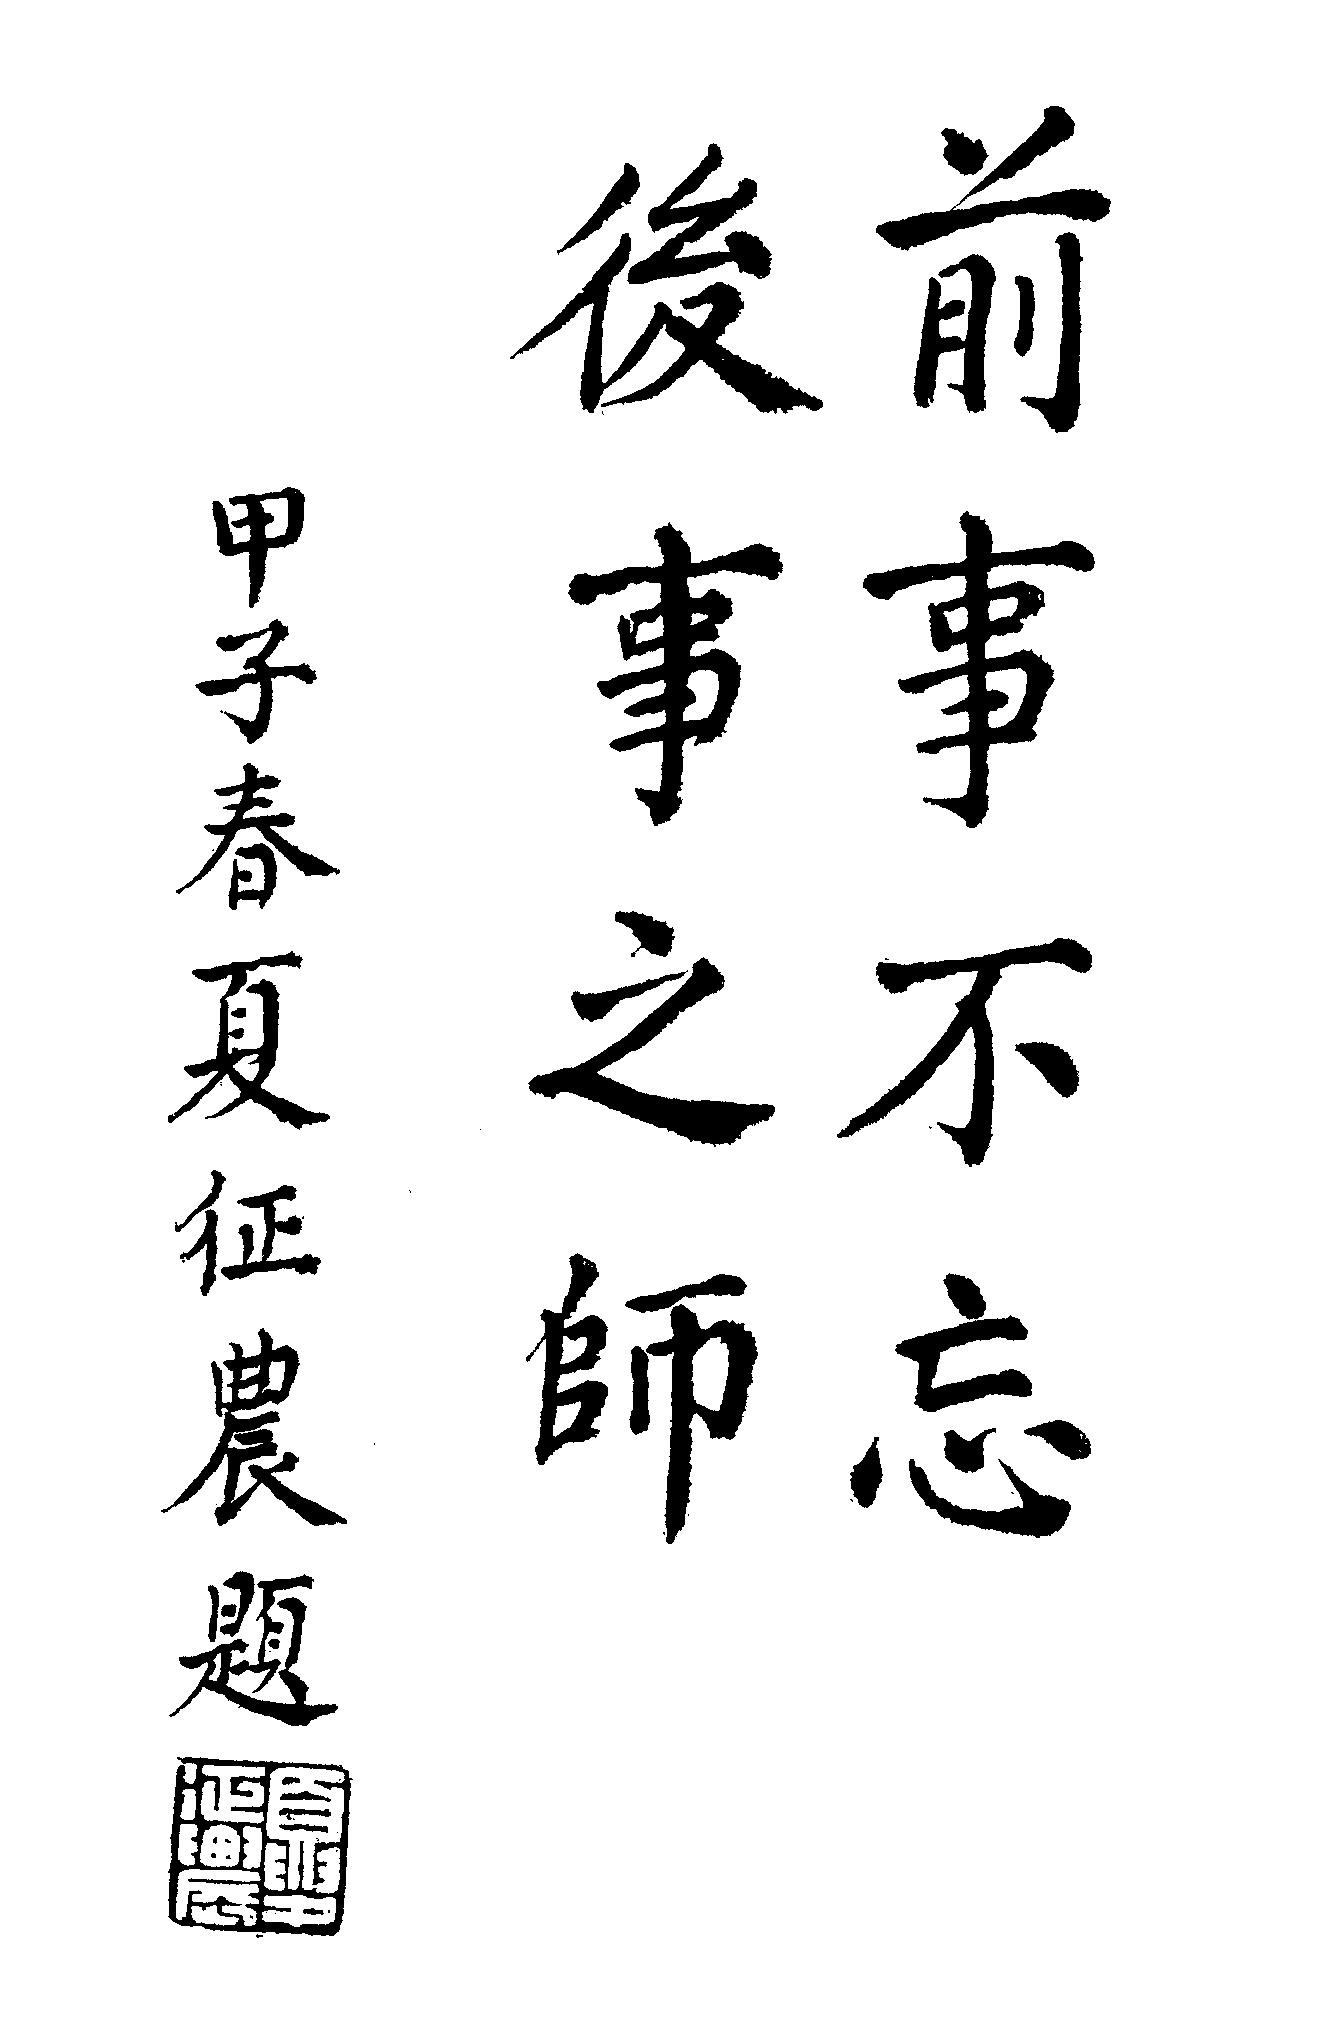 前事不忘
後事之師
甲子春夏征農題
夏征農